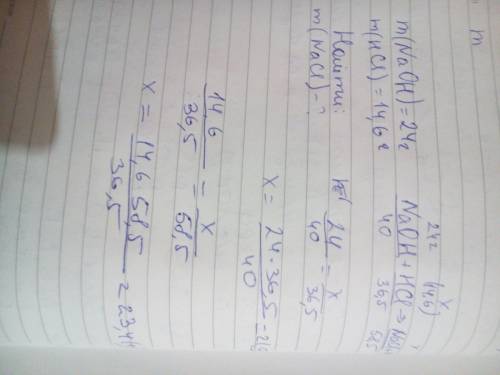 m
m(NaOH)=24г
m(HCl)=14,6г
Найти:
m(NaCl)-?
24г x (14,6)
NaOH+HCl=
40 36,5 58,5
24/40 = x/36,5
x = 24·36,5/40 = 21,9
14,6/36,5 = x/58,5
x = 14,6·58,5/36,5 = 23,4